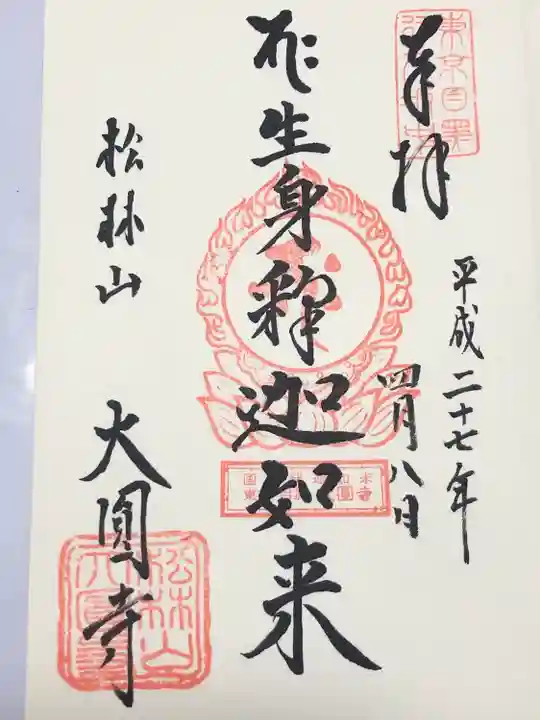 奉拝
平成二十七年
四月八日
生身釈迦如来
松林山
大圓寺
東京目黒
松林山
大圓寺